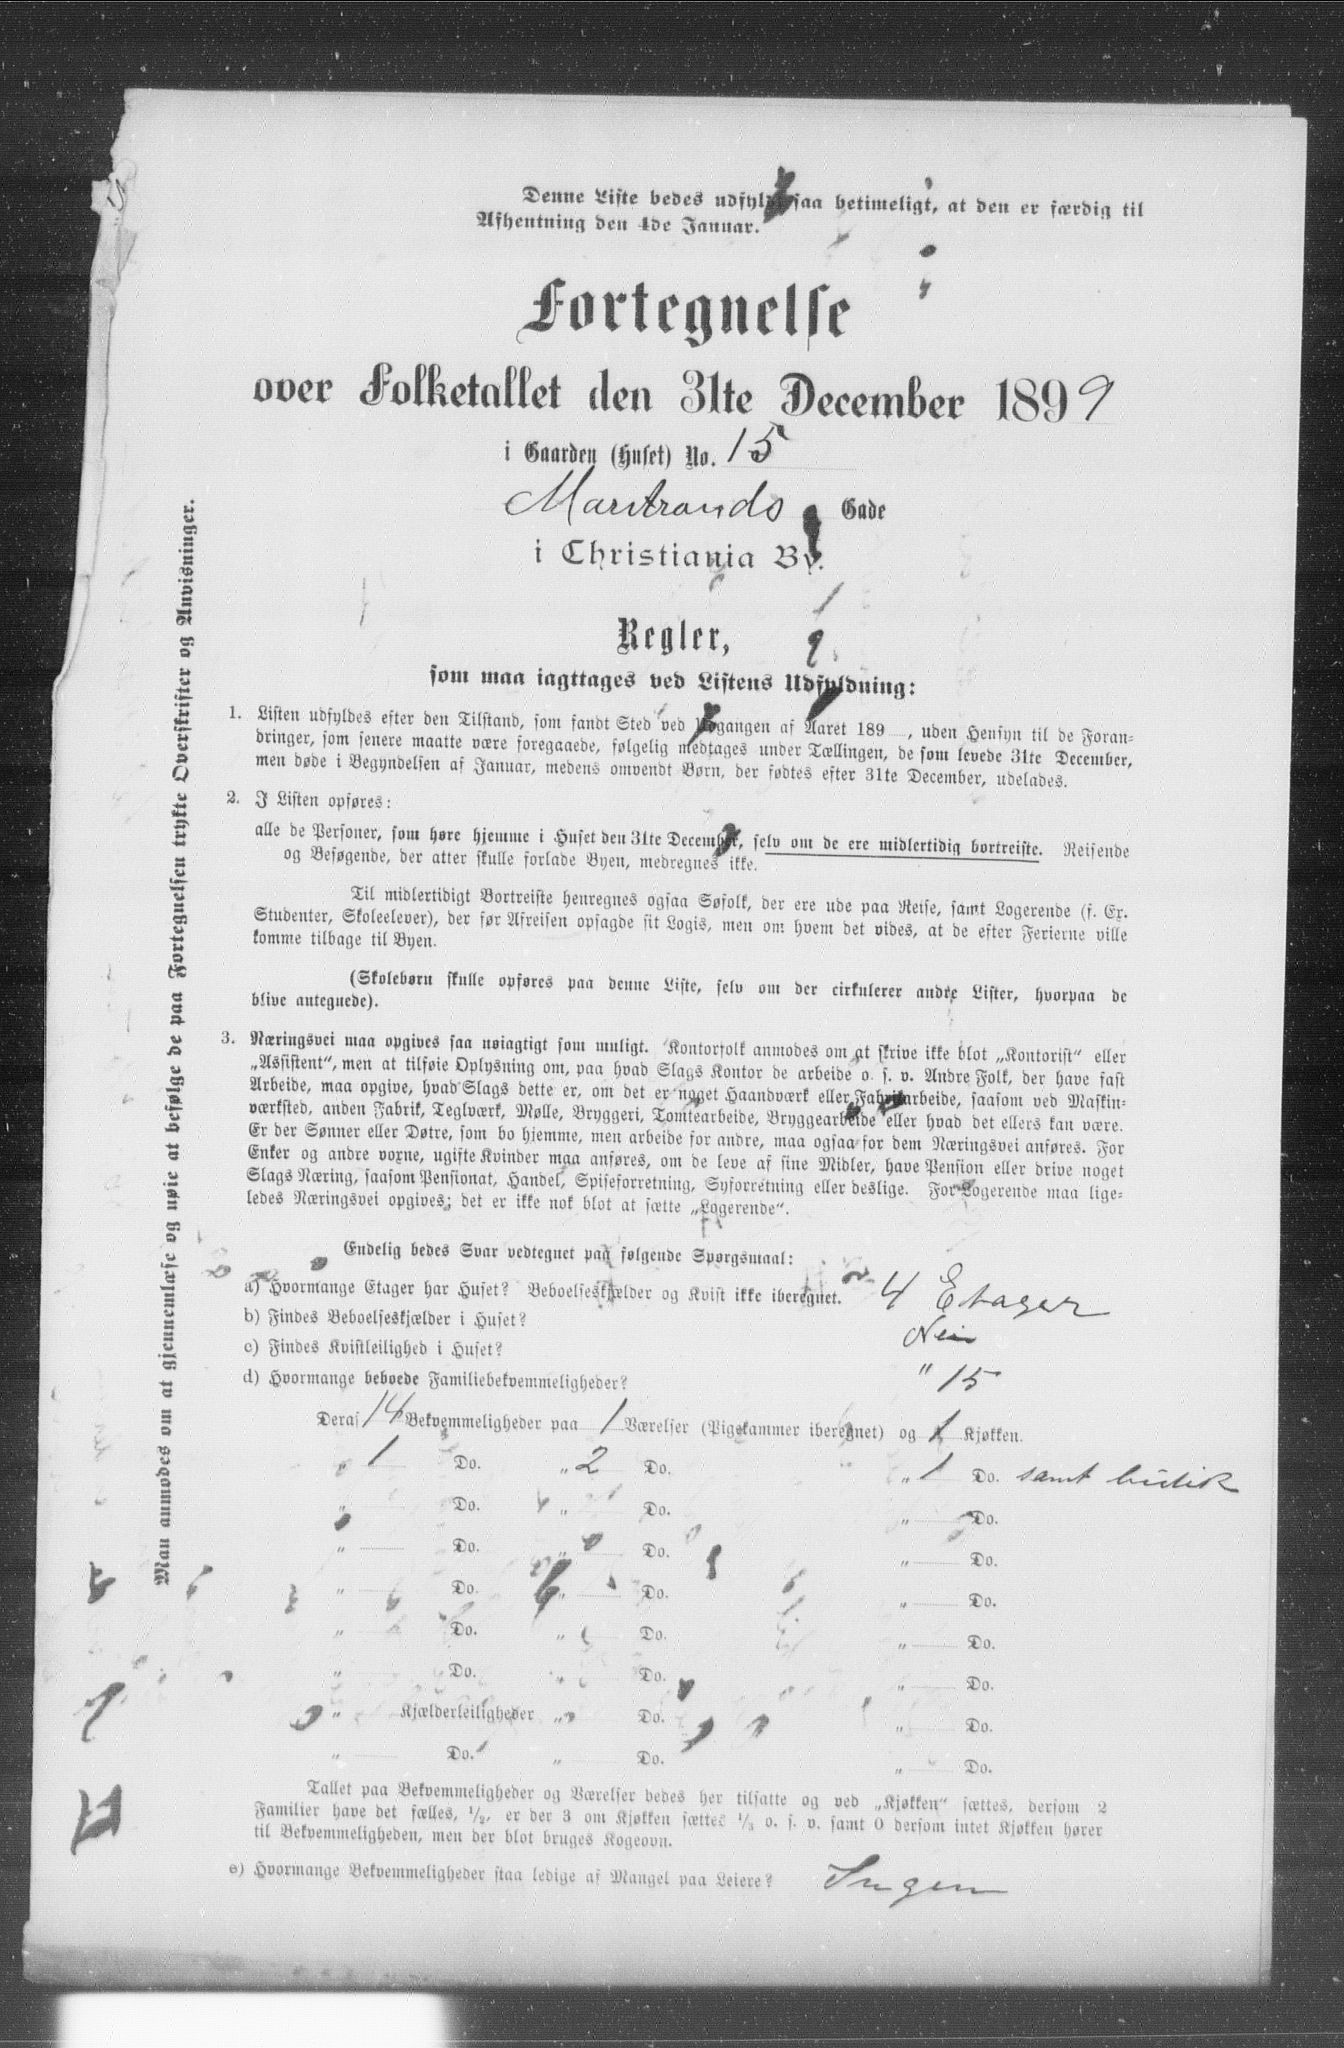 Denne Liste bedes udfyldt saa betimeligt, at den er færdig til
Afhentning den 4de Januar.
Fortegnelse
over Folketallet den 31te December 1899
i Gaarden (Huset) No. 15
Marstrands Gade
i Christiania By.
Regler,
som maa iagttages ved Listens Udfyldning:
1. Listen udfyldes efter den Tilstand, som fandt Sted ved Udgangen af Aaret 189 , uden Hensyn til de Foran-
dringer, som senere maatte være foregaaede, følgelig medtages under Tællingen, de som levede 31te December,
men døde i Begyndelsen af Januar, medens omvendt Børn, der fødtes efter 31te December, udelades.
2. I Listen opføres:
alle de Personer, som høre hjemme i Huset den 31te December, selv om de ere midlertidig bortreiste. Reisende
og Besøgende, der atter skulle forlade Byen, medregnes ikke.
Til midlertidigt Bortreiste henregnes ogsaa Søfolk, der ere ude paa Reise, samt Logerende (f. Ex.
Studenter, Skoleelever), der før Afreisen opsagde sit Logis, men om hvem det vides, at de efter Ferierne ville
komme tilbage til Byen.
(Skolebørn skulle opføres paa denne Liste, selv om der cirkulerer andre Lister, hvorpaa de
blive antegnede).
3. Næringsvei maa opgives saa nøiagtigt som muligt. Kontorfolk anmodes om at skrive ikke blot „Kontorist“ eller
„Assistent“, men at tilføie Oplysning om, paa hvad Slags Kontor de arbeide o. s. v. Andre Folk, der have fast
Arbeide, maa opgive, hvad Slags dette er, om det er noget Haandværk eller Fabrikarbeide, saasom ved Maskin-
værksted, anden Fabrik, Teglværk, Mølle, Bryggeri, Tomtearbeide, Bryggearbeide eller hvad det ellers kan være.
Er der Sønner eller Døtre, som bo hjemme, men arbeide for andre, maa ogsaa for dem Næringsvei anføres. For
Enker og andre voxne, ugifte Kvinder maa anføres, om de leve af sine Midler, have Pension eller drive noget
Slags Næring, saasom Pensionat, Handel, Spiseforretning, Syforretning eller deslige. For Logerende maa lige-
ledes Næringsvei opgives; det er ikke nok blot at sætte „Logerende“.
Endelig bedes Svar vedtegnet paa følgende Spørgsmaal:
a) Hvormange Etager har Huset? Beboelseskjælder og Kvist ikke iberegnet. 4 Etager
b) Findes Beboelseskjælder i Huset? Nei
c) Findes Kvistleilighed i Huset? "
d) Hvormange beboede Familiebekvemmeligheder? 15
Deraf 14 Bekvemmeligheder paa 1 Værelser (Pigekammer iberegnet) og 1 Kjøkken.
„ 1 Do. „ 2 Do. „ 1 Do. samt butik
„ Do. „ Do. „ Do.
„ Do. „ Do. „ Do.
„ Do. „ Do. „ Do.
„ Do. „ Do. „ Do.
„ Do. „ Do. „ Do.
„ Kjælderleiligheder „ Do. „ Do.
„ Do. „ Do. „ Do.
Tallet paa Bekvemmeligheder og Værelser bedes her tilsatte og ved „Kjøkken“ sættes, dersom 2
Familier have det fælles, 1/2, er der 3 om Kjøkken sættes 1/3 o. s. v. samt 0 dersom intet Kjøkken hører
til Bekvemmeligheden, men der blot bruges Kogeovn.
e) Hvormange Bekvemmeligheder staa ledige af Mangel paa Leiere? Ingen
Man anmodes om at gjennemlæse og nøie at befølge de paa Fortegnelsen trykte Overskrifter og Anvisninger.